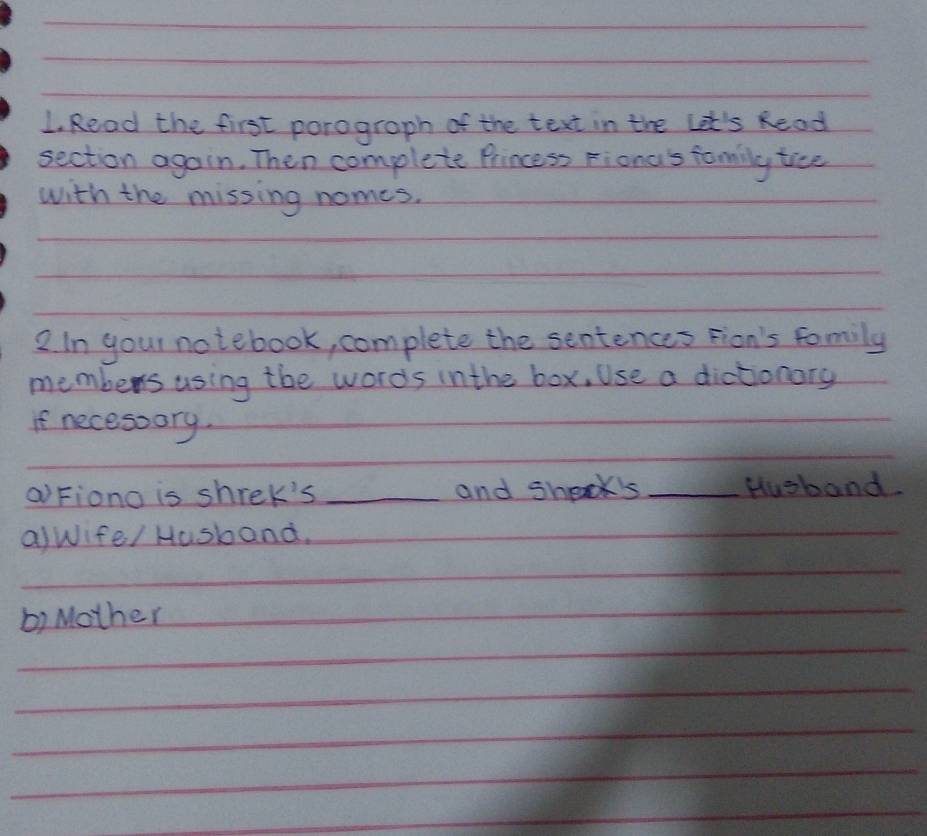 1. Read the first paragraph of the text in the Let's Read
section again. Then complete Princess Fiona's family tree
with the missing names.
2 In your notebook, complete the sentences Fion's Family
members using the words in the box. Use a dictionary
if necessary.
a) Fiona is shrek's ______ and Shreck's _____ Husband.
a) Wife / Husband.
b) Mother